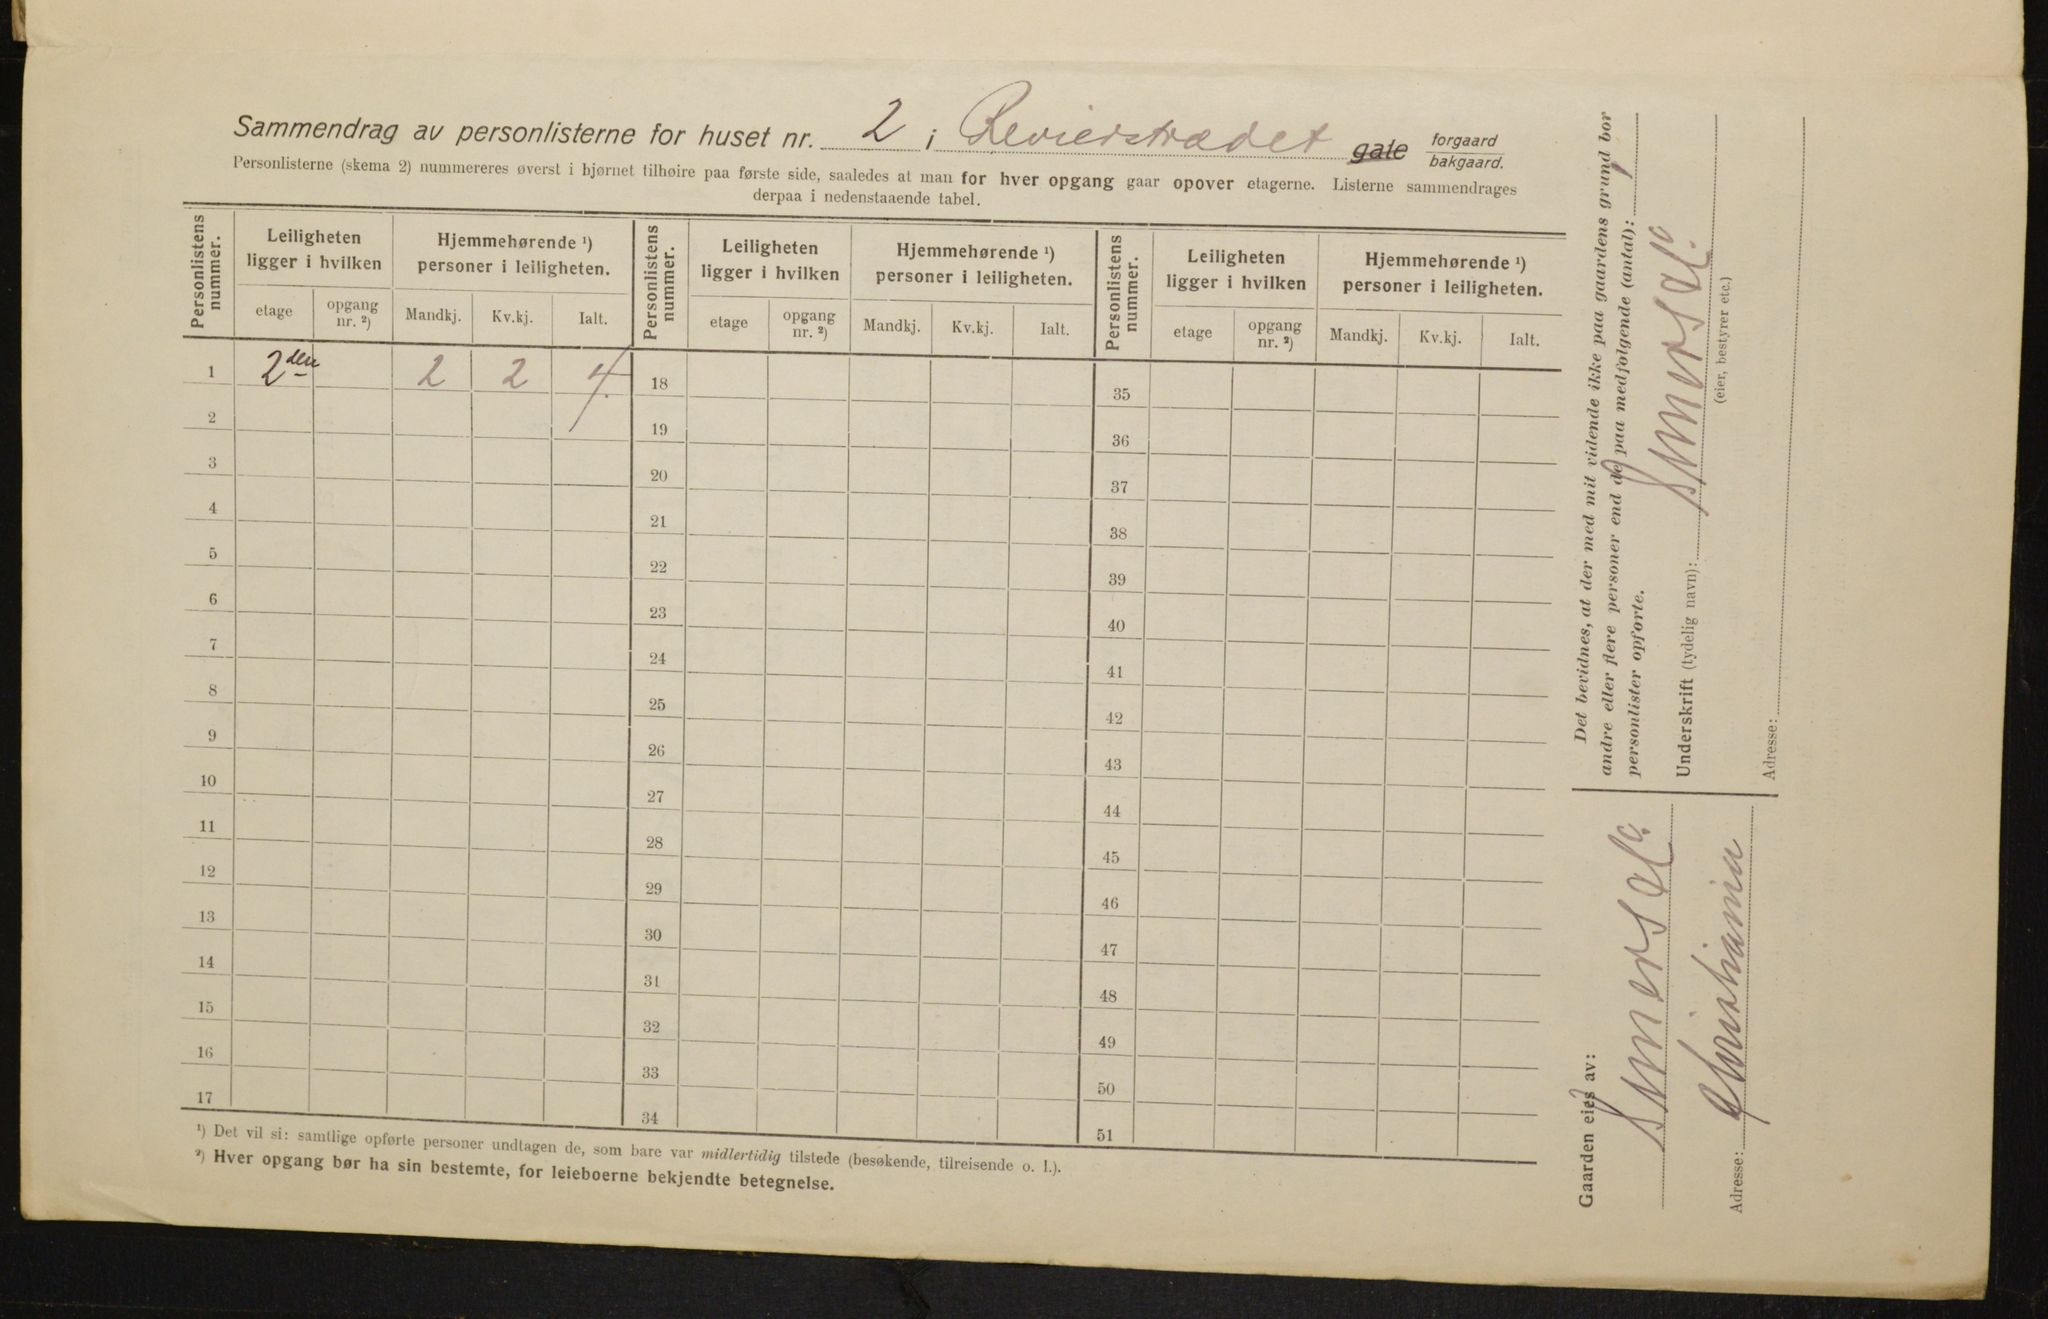 Sammendrag av personlisterne for huset nr. 2 i Revierstrædet gate forgaard bakgaard.
Personlisterne (skema 2) nummereres øverst i hjørnet tilhøire paa første side, saaledes at man for hver opgang gaar opover etagerne. Listerne sammendrages
derpaa i nedenstaaende tabel.
Personlistens nummer. Leiligheten ligger i hvilken Hjemmehørende ¹) personer i leiligheten. Personlistens nummer. Leiligheten ligger i hvilken Hjemmehørende ¹) personer i leiligheten. Personlistens nummer. Leiligheten ligger i hvilken Hjemmehørende ¹) personer i leiligheten.
etage opgang nr. ²) Mandkj. Kv.kj. Ialt. etage opgang nr. ²) Mandkj. Kv.kj. Ialt. etage opgang nr. ²) Mandkj. Kv.kj. Ialt.
1 2den 2 2 4 18 35
2 19 36
3 20 37
4 21 38
5 22 39
6 23 40
7 24 41
8 25 42
9 26 43
10 27 44
11 28 45
12 29 46
13 30 47
14 31 48
15 32 49
16 33 50
17 34 51
¹) Det vil si: samtlige opførte personer undtagen de, som bare var midlertidig tilstede (besøkende, tilreisende o. l.).
²) Hver opgang bør ha sin bestemte, for leieboerne bekjendte betegnelse.
Gaarden eies av:
Adresse: Christiania
Det bevidnes, at der med mit vidende ikke paa gaardens grund bor
andre eller flere personer end de paa medfølgende (antal): 1
personlister opførte.
Underskrift (tydelig navn):
(eier, bestyrer etc.)
Adresse: